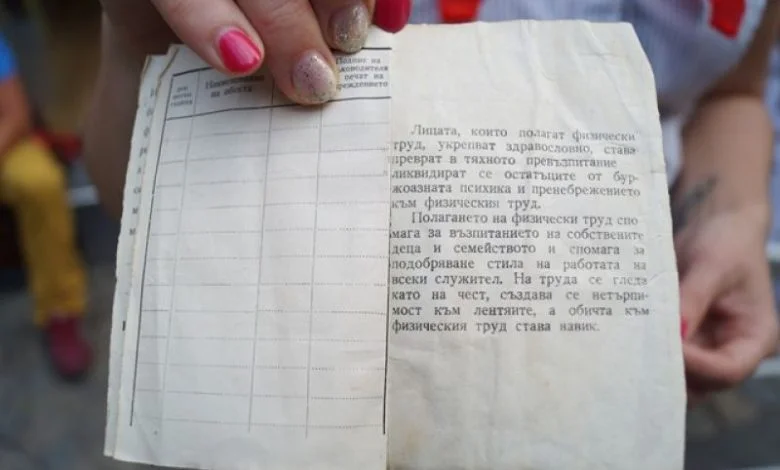 Наименование
на обекта
Подпис на
ръководителя
печат на
Лицата, които полагат физически
труд, укрепват здравословно, става
преврат в тяхното превъзпитание
ликвидират се остатъците от бур-
жоазната психика и пренебрежението
към физическия труд.
Полагането на физически труд спо
мага за възпитанието на собствените
деца и семейството и спомага за
подобряване стила на работата на
всеки служител. На труда се гледа
като на чест, създава се нетърпи-
мост към лентяите, а обичта към
физическия труд става навик.